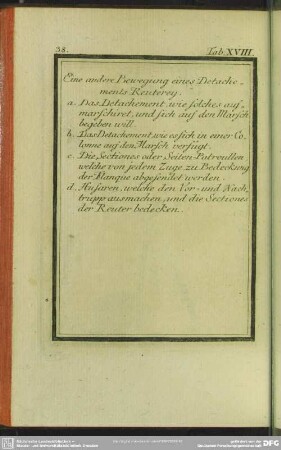 38.
Tab. XVIII.
Eine andere Bewegung eines Detache-
ments Reuterey.
a. Das Detachement, wie solches auf-
marschiret, und sich auf den Marsch
begeben will.
b. Das Detachement wie es sich in einer Co-
lonne auf den Marsch verfügt.
c. Die Sectiones oder Seiten-Patroullen
welche von jedem Zuge zu Bedeckung
der Flanque abgesendet werden.
d. Husaren, welche den Vor- und Nach-
trupp ausmachen, und die Sectiones
der Reuter bedecken.
DFG